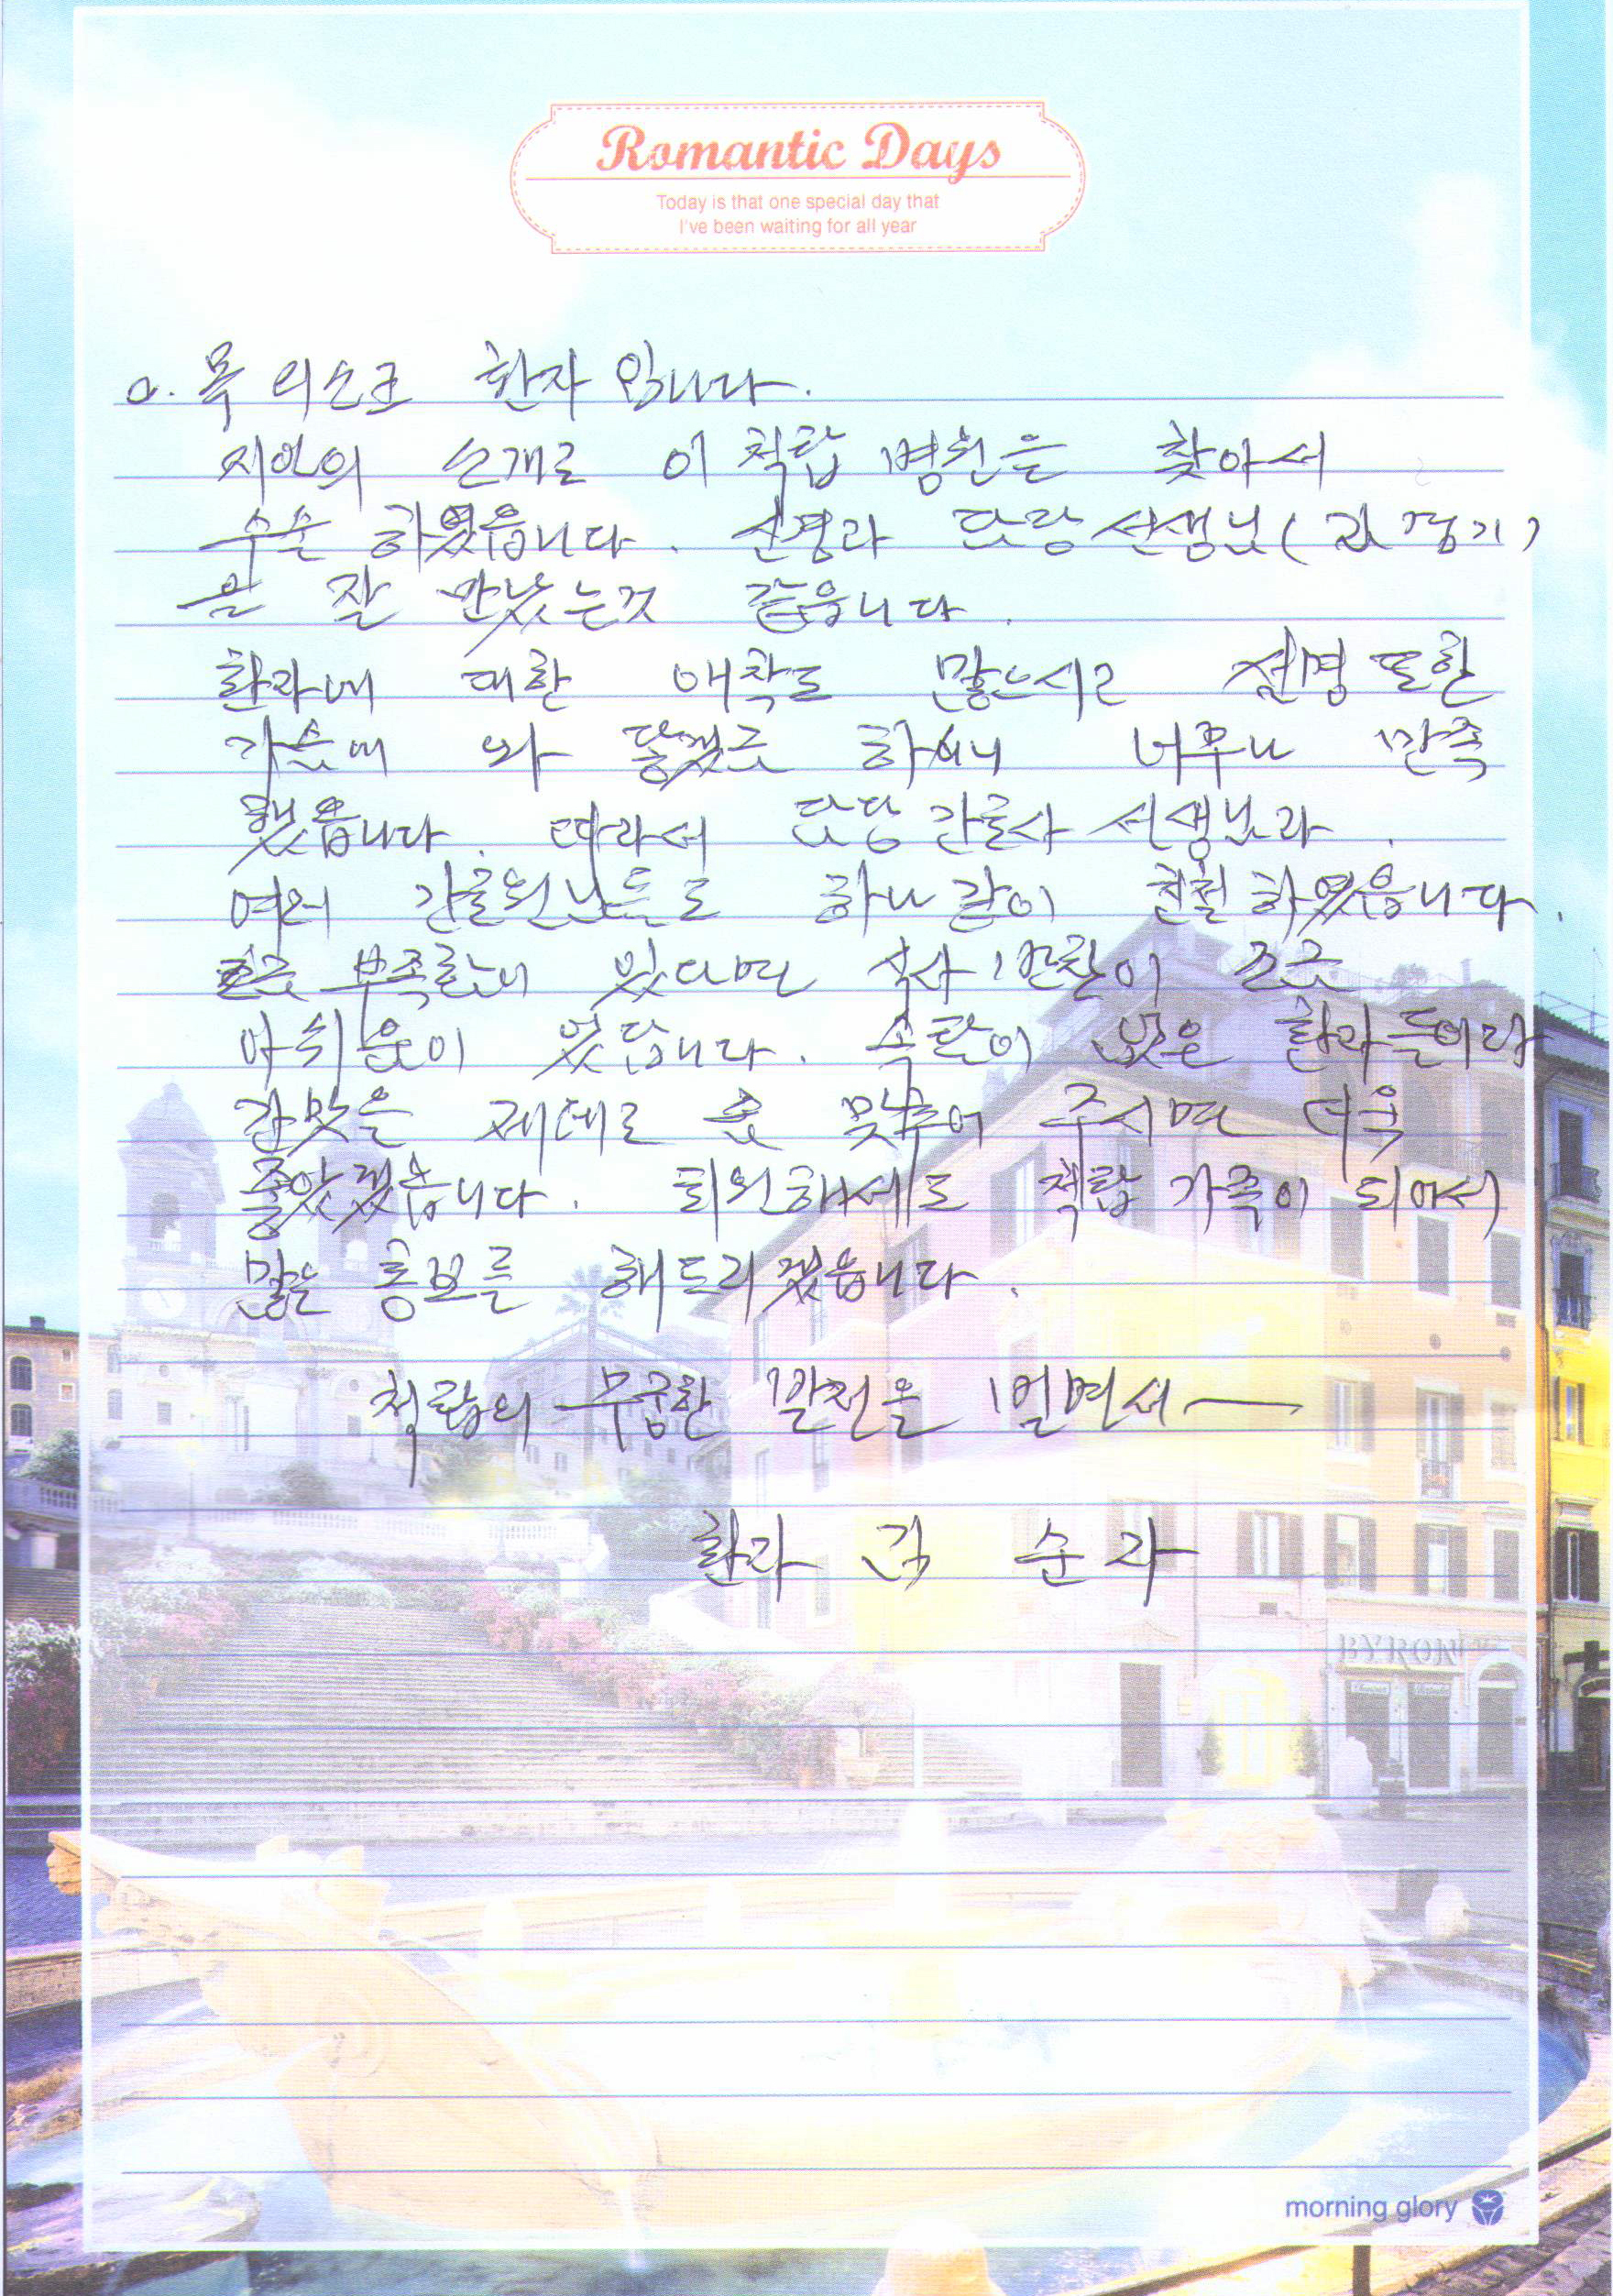 Romantic Days
Today is that one special day that
I've been waiting for all year
o. 목 디스크 환자 입니다.
지인의 소개로 이 척탑 병원을 찾아서
수술 하였읍니다. 신경과 담당 선생님(김정기)
을 잘 만났는것 같읍니다.
환자에 대한 애착도 많으시고 설명 또한
가슴에 와 닿겠금 하시니 너무나 만족
했읍니다. 따라서 담당 간호사 선생님과.
여러 간호원님들도 하나 같이 친절 하였읍니다.
조금 부족함이 있다면 식사 반찬이 조금
아쉬움이 있답니다. 식단이 같은 환자들이라
간맛을 제데로 좀 맞추어 주시면 더욱
좋았겠읍니다. 퇴원해서도 척탑 가족이 되어서
많은 홍보를 해드리겠읍니다.
척탑의 무궁한 발전을 빌면서—
환자 김 순 자
BYRON
morning glory